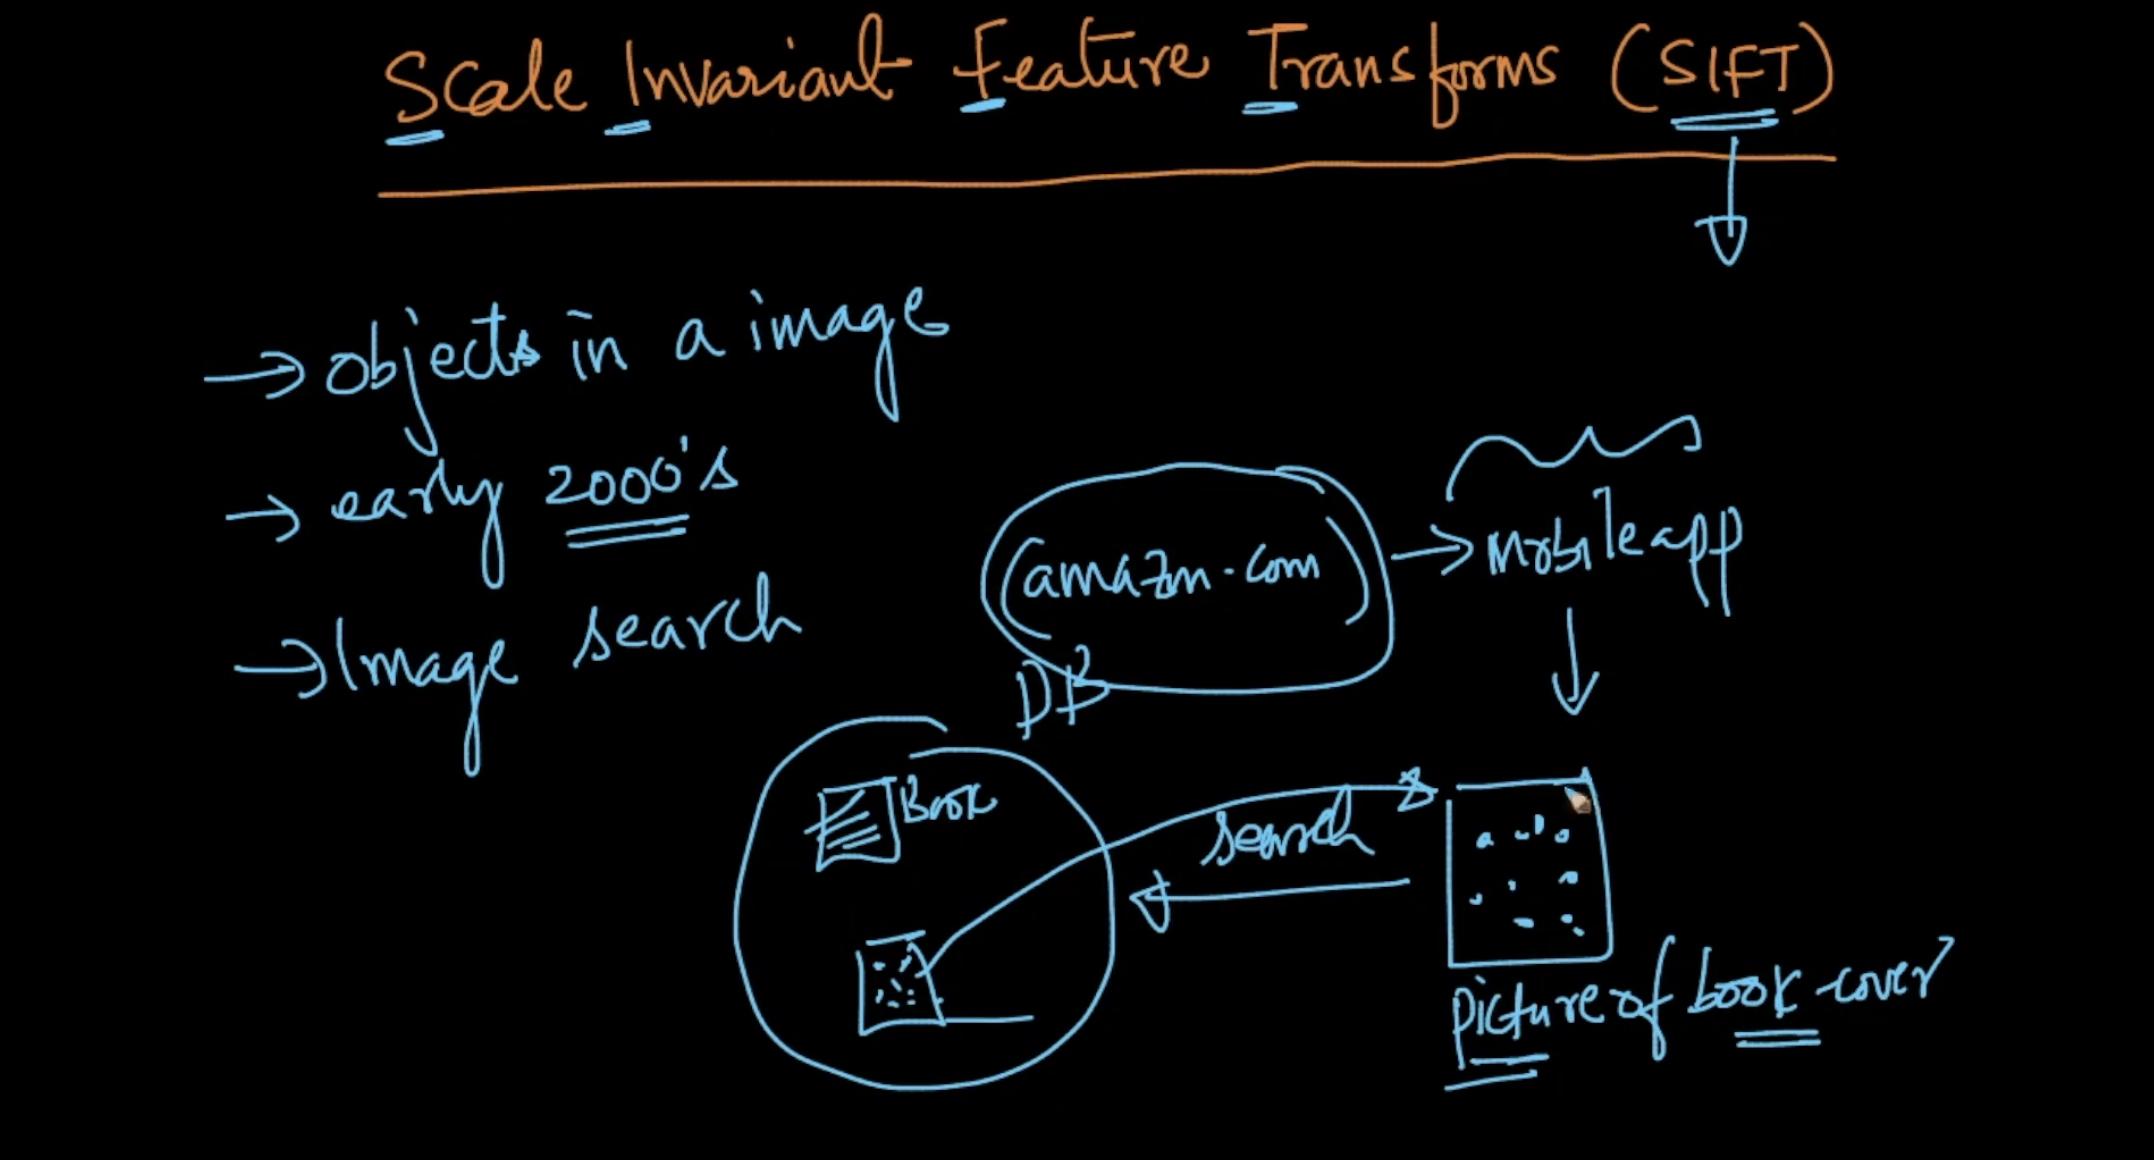 Scale Invariant Feature Transforms (SIFT)
→ objects in a image
→ early 2000's
→ Image search
(amazon.com) → mobile app
DB
Book
search
picture of book-cover